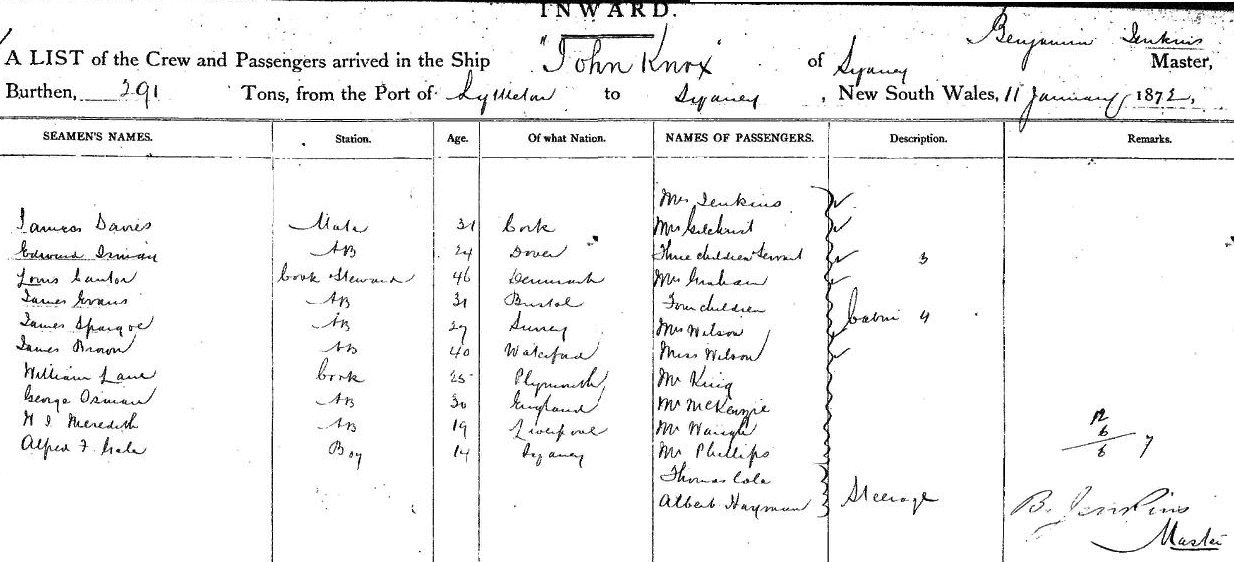 INWARD.
A LIST of the Crew and Passengers arrived in the Ship "John Knox" of Sydney Benjamin Jenkins Master,
Burthen, 291 Tons, from the Port of to Sydney, New South Wales, 11 January 1872,
SEAMEN'S NAMES. Station. Age. Of what Nation. NAMES OF PASSENGERS. Description. Remarks.
Mrs Jenkins
James Davies Mate 31 Cork Mrs Gilchrist
Edward AB 24 Dover Three children Servant 3
Louis Cook Steward 46 Denmark Mrs Graham
James Evans AB 31 Bristol Four children
James Spargoe AB 29 Surrey Mrs Wilson Cabin 4
James Brown AB 40 Waterford Miss Wilson
William Lane Cook 25 Plymouth Mr King
George Osman AB 30 England Mr McKenzie
Meredith AB 19 Liverpool Mr Waugh 12
6
Alfred F. Boy 14 Sydney Mr Phillips 6 7
Thomas Cole
Albert Hayman Steerage B. Jenkins
Master